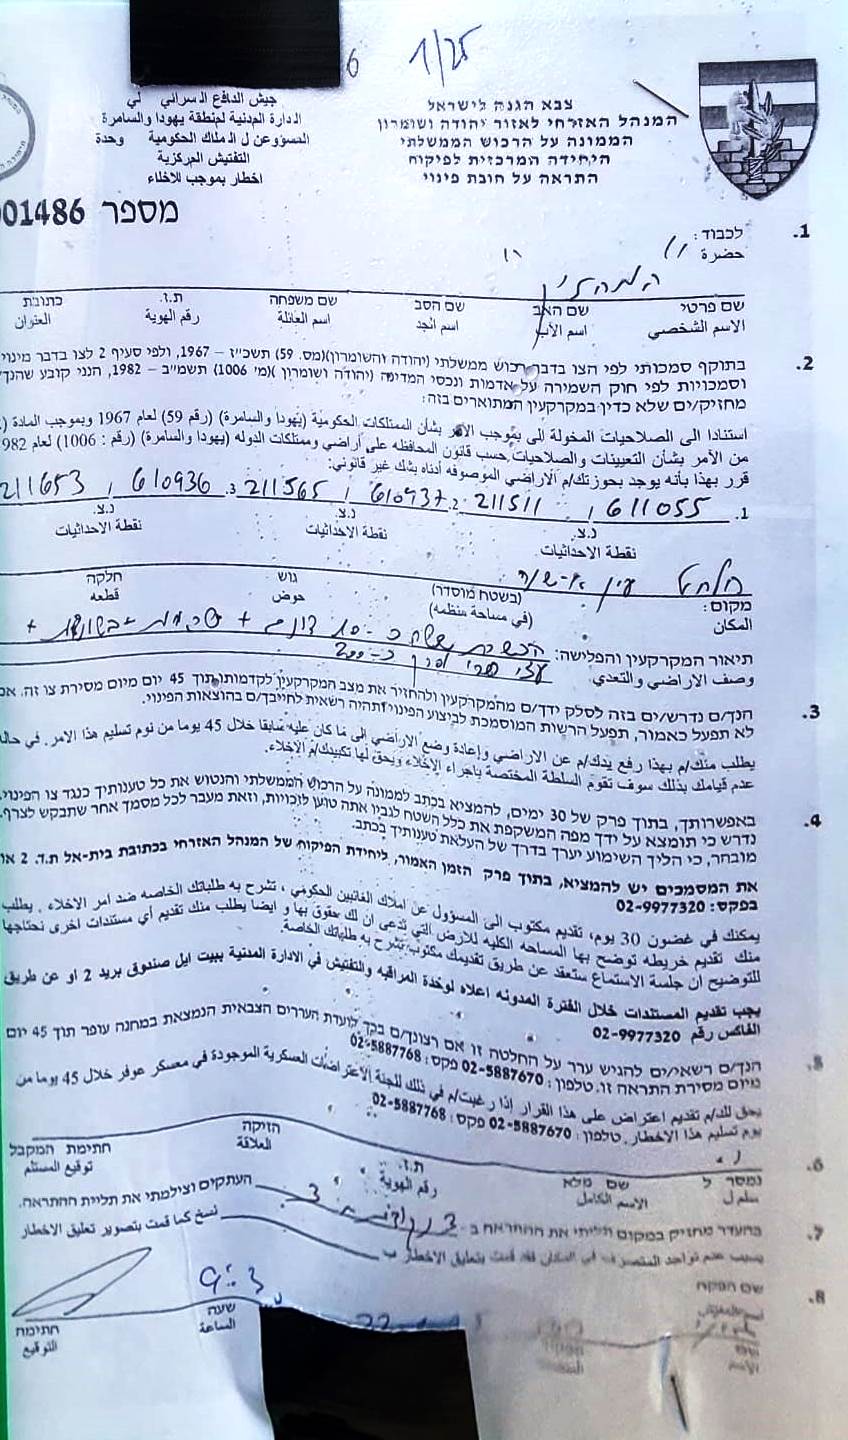 1/25
צבא הגנה לישראל
המנהל האזרחי לאזור יהודה ושומרון
הממונה על הרכוש הממשלתי
היחידה המרכזית לפיקוח
התראה על חובת פינוי
جيش الدافع السرائي لي
الدارة المدنية لمنطقة يهودا والسامرة
المسؤوعن ل الملاك الحكومية وحدة
التفتيش المركزية
اخطار بموجب للاخلاء
מספר 001486
1. לכבוד:
חضרה
שם פרטי שם האב שם הסב שם משפחה ת.ז. כתובת
الاسم الشخصي اسم الأب اسم الجد اسم العائلة رقم الهوية العنوان
2. בתוקף סמכותי לפי הצו בדבר רכוש ממשלתי (יהודה והשומרון)(מס. 59) תשכ״ז – 1967, ולפי סעיף 2 לצו בדבר מינוי
וסמכויות לפי חוק השמירה על אדמות ונכסי המדינה (יהודה ושומרון)(מ׳ 1006) תשמ״ב – 1982, הנני קובע שהנך/
מחזיק/ים שלא כדין במקרקעין המתוארים בזה:
استنادا الى الصلاحيات المخولة الى بموجب الأمر بشأن الممتلكات الحكومية (يهودا والسامرة) (رقم 59) لعام 1967 وبموجب المادة
من الأمر بشأن التعيينات والصلاحيات حسب قانون المحافظه على أراضي وممتلكات الدوله (يهودا والسامرة) (رقم: 1006) لعام 1982
قرر بهذا بأنه يوجد بحوزتك/م الاراضي الموصوفه أدناه بشك غير قانوني:
1. 611055 / 211511 2. 610937 / 211565 3. 610936 / 211653
נ.צ. נ.צ. נ.צ.
نقطة الاحداثيات نقطة الاحداثيات نقطة الاحداثيات
מקום: (בשטח מוסדר) גוש חלקה
المكان (في مساحة منظمه) حوض قطعه
תיאור המקרקעין והפלישה:
وصف الاراضي والتعدي:
3. הנך/ם נדרש/ים בזה לסלק ידך/ם מהמקרקעין ולהחזיר את מצב המקרקעין לקדמותו תוך 45 יום מיום מסירת צו זה. אם
לא תפעל כאמור, תפעל הרשות המוסמכת לביצוע הפינוי ותהיה רשאית לחייבך/ם בהוצאות הפינוי.
يطلب منك/م بهذا رفع يدك/م عن الاراضي وإعادة وضع الاراضي إلى ما كان عليه سابقا خلال 45 يوما من يوم تسليم هذا الامر. في حالة
عدم قيامك بذلك سوف تقوم السلطة المختصة باجراء الإخلاء ويحق لها تكبيدك/م الإخلاء.
4. באפשרותך, בתוך פרק של 30 ימים, להמציא בכתב לממונה על הרכוש הממשלתי והנטוש את כל טענותיך כנגד צו הפינוי.
נדרש כי תומצא על ידך מפה המשקפת את כלל השטח לגביו אתה טוען לזכויות, וזאת מעבר לכל מסמך אחר שתבקש לצרף.
מובהר, כי הליך השימוע יערך בדרך של העלאת טענותיך בכתב.
את המסמכים יש להמציא, בתוך פרק הזמן האמור, ליחידת הפיקוח של המנהל האזרחי בכתובת בית-אל ת.ד. 2 או
בפקס: 02-9977320
يمكنك في غضون 30 يوم، تقديم مكتوب الى المسؤول عن املاك الغائبين الحكومي، تشرح به طلباتك الخاصه ضد امر الاخلاء. يطلب
منك تقديم خريطه توضح بها المساحه الكليه للارض التي تدعي ان لك حقوق بها وايضا يطلب منك تقديم أي مستندات اخرى نحتاجها
للتوضيح ان جلسة الاستماع ستعقد عن طريق تقديمك مكتوب تشرح به طلباتك الخاصة.
يجب تقديم المستندات خلال الفترة المدونه اعلاه لوحدة المراقبه والتفتيش في الادارة المدنية ببيت ايل صندوق بريد 2 او عن طريق
الفاكس رقم 02-9977320
5. הנך/ם רשאי/ים להגיש ערר על החלטה זו אם רצונך/ם בכך לועדת העררים הצבאית הנמצאת במחנה עופר תוך 45 יום
מיום מסירת התראה זו. טלפון: 02-5887670 פקס: 02-5887768
يحق لك/م تقديم اعتراض على هذا القرار إذا رغبت/م في ذلك للجنة الاعتراضات العسكرية الموجودة في معسكر عوفر خلال 45 يوما من
يوم تسليم هذا الاخطار. تلفون: 02-5887670 فكس: 02-5887768
6. נמסר ל שם מלא ת.ז. הזיקה חתימת המקבל
سلم ل الاسم الكامل رقم الهوية العلاقة توقيع المستلم
7. בהעדר מחזיק במקום תליתי את ההתראה ב- העתקים וצילמתי את תליית ההתראה.
بسبب عدم تواجد المتصرف في المكان فقد قمت بتعليق الاخطار ب نسخ كما قمت بتصوير تعليق الاخطار
8. שם הפקח
שעה חתימת
الساعة التوقيع